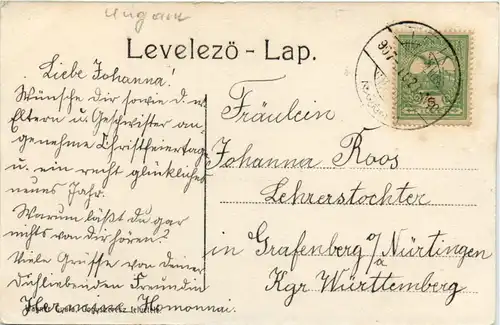 Ungarn
Levelező - Lap.
Liebe Johanna!
Wünsche Dir sowie d. w.
Eltern u. Geschwister an-
genehme Christfeiertage
u. ein recht glückliches
neues Jahr.
Warum läßt du gar
nichts von dir hören?
Viele Grüsse von deiner
Dichliebenden Freundin
Hermanna Homonnai.
Fräulein
Johanna Roos
Lehrerstochter
in Grafenberg o/a Nürtingen
Kgr. Württemberg